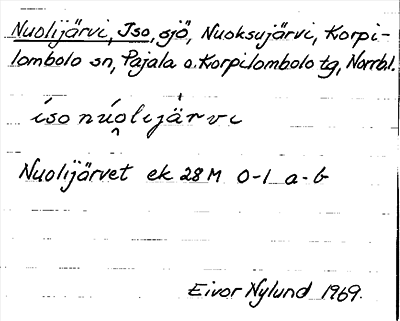 Nuolijärvi, Iso, sjö, Nuoksujärvi, Korpi-
lombolo sn, Pajala o. Korpilombolo tg, Norrbl.
íso núo̭lijä̀rvi
Nuolijärvet ek 28 M 0-1 a-b
Eivor Nylund 1969.